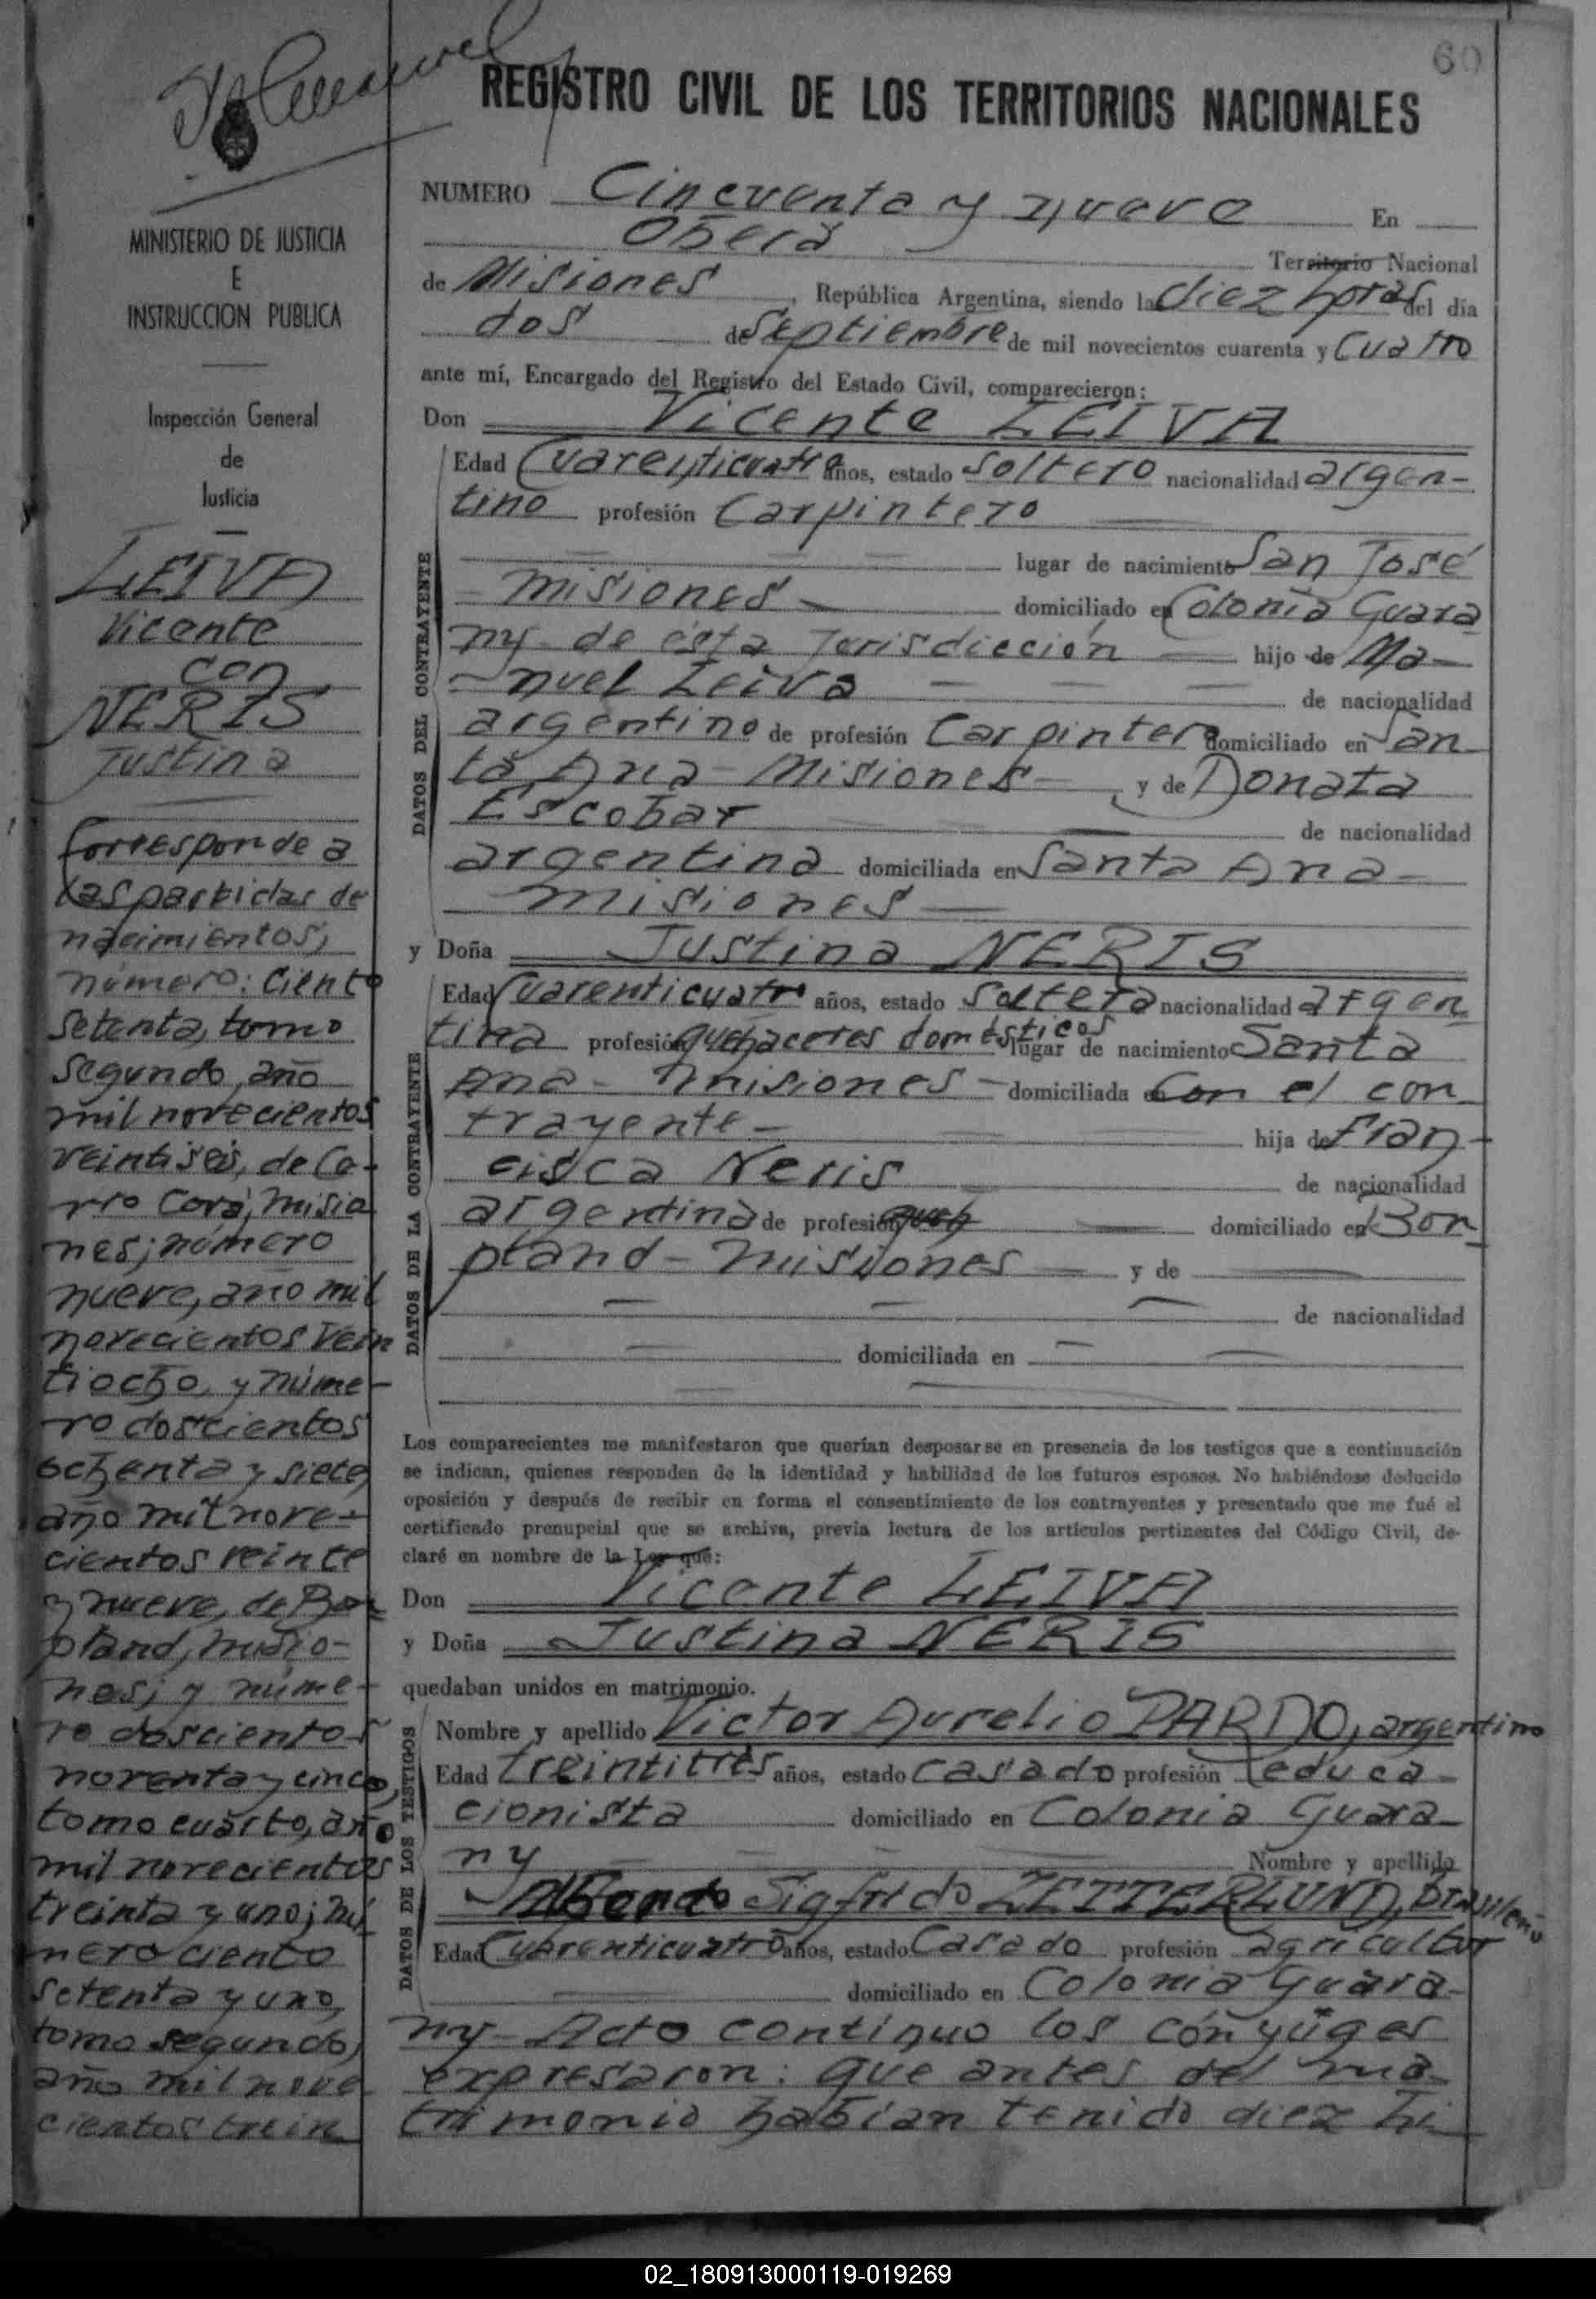 60
REGISTRO CIVIL DE LOS TERRITORIOS NACIONALES
MINISTERIO DE JUSTICIA
E
INSTRUCCION PUBLICA
Inspección General
de
Justicia
LEIVA
Vicente
con
NERIS
Justina
Corresponde a
las partidas de
nacimientos,
número: ciento
setenta, tomo
segundo, año
mil novecientos
veintiseis, de Ce-
rro Corá, Misio
nes; número
nueve, año mil
novecientos vein
tiocho y núme-
ro doscientos
ochenta y siete,
año mil nove-
cientos veinte
y nueve, de Bon
pland, Misio-
nes; y núme-
ro doscientos
noventa y cinco,
tomo cuarto, año
mil novecientos
treinta y uno; nú
mero ciento
setenta y uno,
tomo segundo,
año mil nove
cientos trein
NUMERO Cincuenta y nueve En
Oberá Territorio Nacional
de Misiones, República Argentina, siendo la diez horas del día
dos de Septiembre de mil novecientos cuarenta y cuatro
ante mí, Encargado del Registro del Estado Civil, comparecieron:
Don Vicente LEIVA
DATOS DEL CONTRAYENTE
Edad Cuarenticuatro años, estado soltero nacionalidad argen-
tino profesión Carpintero
lugar de nacimiento San José
- Misiones - domiciliado en Colonia Guara
ny - de ésta Jurisdicción hijo de Ma-
nuel Leiva de nacionalidad
argentino de profesión Carpintero domiciliado en San
ta Ana - Misiones - y de Donata
Escobar de nacionalidad
argentina domiciliada en Santa Ana -
Misiones
y Doña Justina NERIS
DATOS DE LA CONTRAYENTE
Edad Cuarenticuatro años, estado soltera nacionalidad argen
tina profesión quehaceres domésticos lugar de nacimiento Santa
Ana - Misiones - domiciliada en Con el con
trayente - hija de Fran-
cisca Neris de nacionalidad
argentina de profesión queh domiciliado en Bon
pland - Misiones y de
de nacionalidad
domiciliada en
Los comparecientes me manifestaron que querían desposarse en presencia de los testigos que a continuación
se indican, quienes responden de la identidad y habilidad de los futuros esposos. No habiéndose deducido
oposición y después de recibir en forma el consentimiento de los contrayentes y presentado que me fué el
certificado prenupcial que se archiva, previa lectura de los artículos pertinentes del Código Civil, de-
claré en nombre de la Ley que:
Don Vicente LEIVA
y Doña Justina NERIS
quedaban unidos en matrimonio.
DATOS DE LOS TESTIGOS
Nombre y apellido Victor Aurelio PARDO, argentino
Edad treintitrés años, estado casado profesión educa-
cionista domiciliado en Colonia Guara-
ny Nombre y apellido
Sigfrido ZETTERLUND, brasileño
Edad Cuarenticuatro años, estado Casado profesión agricultor
domiciliado en Colonia Guara-
ny - Acto continuo los cónyuges
expresaron: que antes del ma-
trimonio habían tenido diez hi
02_180913000119-019269